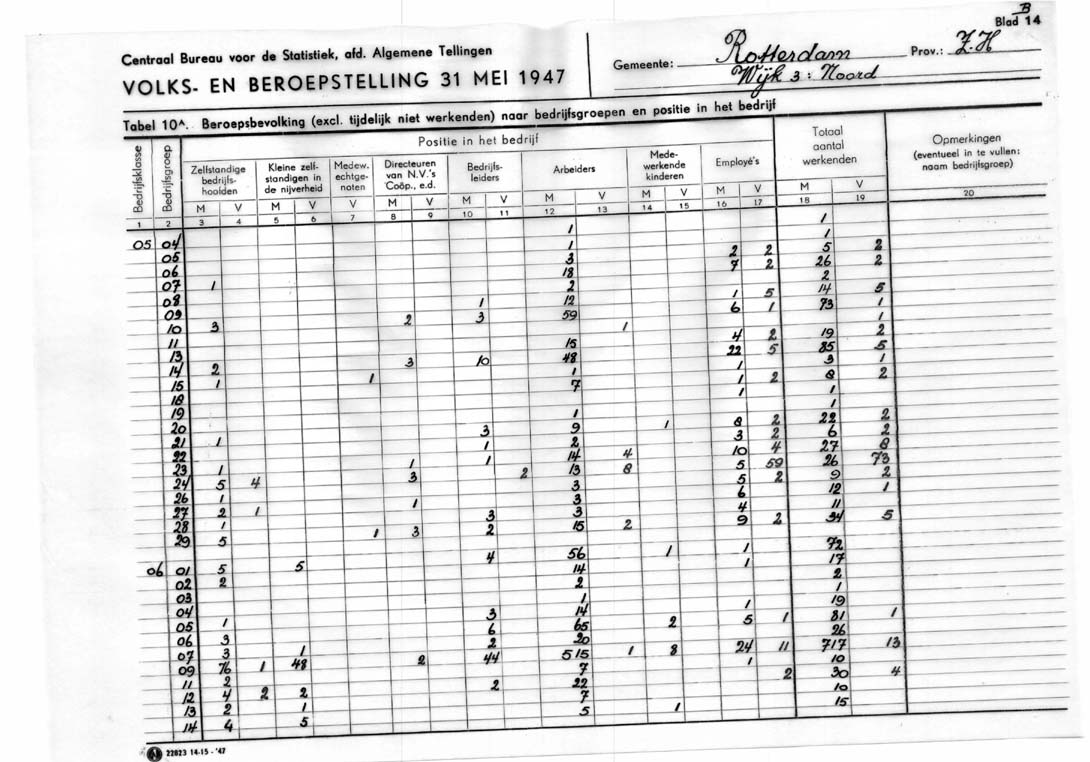 B
Blad 14
Centraal Bureau voor de Statistiek, afd. Algemene Tellingen
VOLKS- EN BEROEPSTELLING 31 MEI 1947
Gemeente: Rotterdam Prov.: Z.H
Wijk 3: Noord
Tabel 10A. Beroepsbevolking (excl. tijdelijk niet werkenden) naar bedrijfsgroepen en positie in het bedrijf
Bedrijfsklasse
Bedrijfsgroep
Positie in het bedrijf
Zelfstandige
bedrijfs-
hoofden
Kleine zelf-
standigen in
de nijverheid
Medew.
echtge-
noten
Directeuren
van N.V.'s
Coöp., e.d.
Bedrijfs-
leiders
Arbeiders
Mede-
werkende
kinderen
Employé's
Totaal
aantal
werkenden
Opmerkingen
(eventueel in te vullen:
naam bedrijfsgroep)
M V M V V M V M V M V M V M V M V
1 2 3 4 5 6 7 8 9 10 11 12 13 14 15 16 17 18 19 20
05 04 1 1
05 1 1
06 3 2 2 5 2
07 1 18 7 2 26 2
08 2 2
09 1 12 1 5 14 5
10 3 2 3 59 6 1 73 1
11 1 1
13 15 4 2 19 2
14 2 3 10 48 22 5 85 5
15 1 1 1 1 3 1
18 7 1 2 8 2
19 1 1
20 1 1
21 1 3 9 1 8 2 22 2
22 1 2 3 2 6 2
23 1 1 1 14 4 10 4 27 8
24 5 4 3 2 13 8 5 59 26 73
26 1 3 5 2 9 2
27 2 1 1 3 6 12 1
28 1 3 3 4 11
29 5 1 3 2 15 2 9 2 34 5
06 01 5 5 4 56 1 1 72
02 2 14 1 17
03 2 2
04 1 1
05 1 3 14 1 19
06 3 6 65 2 5 1 81 1
07 3 1 2 20 26
09 76 1 48 2 44 515 1 8 24 11 717 13
11 2 7 1 10
12 4 2 2 2 22 2 30 4
13 2 1 7 10
14 4 5 5 1 15
22823 14-15 - '47